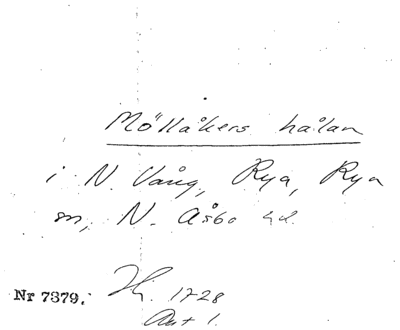 Möllåkers hålan
i N. Vång, Rya, Rya
sn, N. Åsbo hd.
Nr 7379. Hj. 1728
Akt 1.